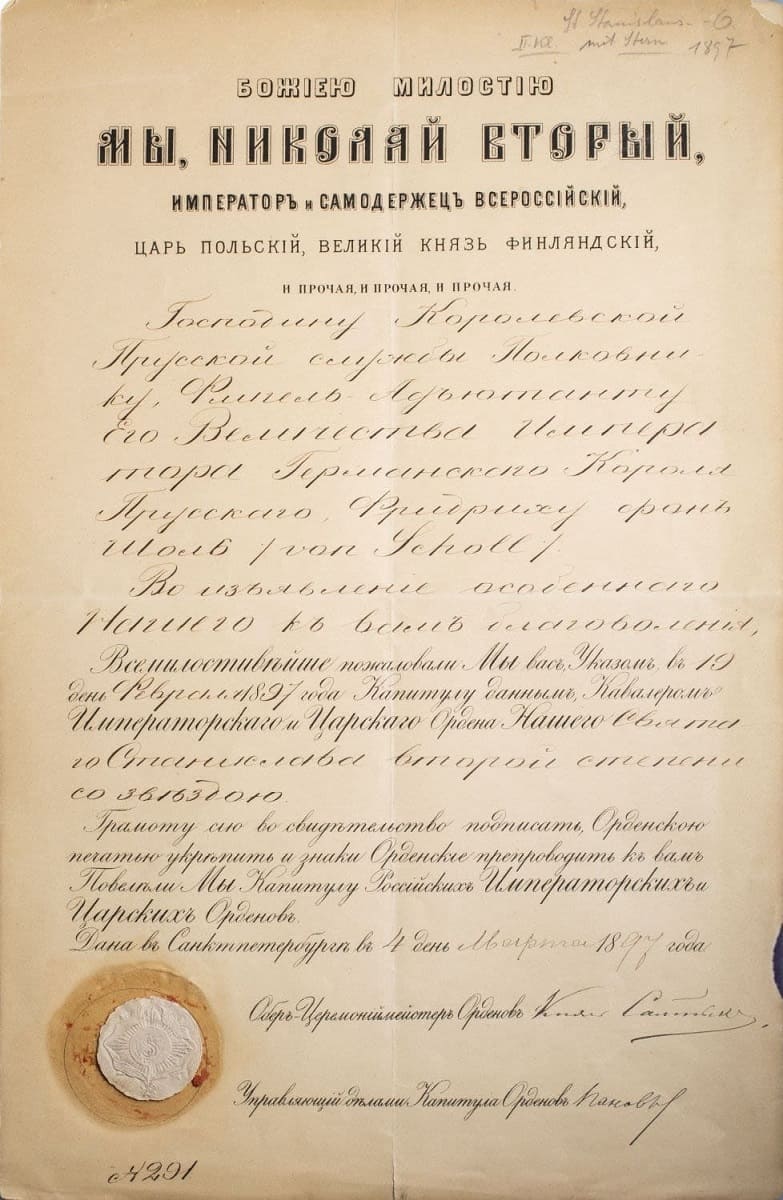 St Stanislaus
II. Kl. mit Stern 1897
БОЖІЕЮ МИЛОСТІЮ
МЫ, НИКОЛАЙ ВТОРЫЙ,
ИМПЕРАТОРЪ и САМОДЕРЖЕЦЪ ВСЕРОССІЙСКІЙ,
ЦАРЬ ПОЛЬСКІЙ, ВЕЛИКІЙ КНЯЗЬ ФИНЛЯНДСКІЙ,
И ПРОЧАЯ, И ПРОЧАЯ, И ПРОЧАЯ.
Господину Королевской
Прусской службы Полковни-
ку, Флигель-Адъютанту
Его Величества Импера
тора Германскаго Короля
Прусскаго, Фридриху фонъ
Шолль /von Scholl/.
Во изъявленіе особеннаго
Нашего къ вамъ благоволенія,
Всемилостивѣйше пожаловали Мы васъ, Указомъ, въ 19
день Февраля 1897 года Капитулу даннымъ, Кавалеромъ
Императорскаго и Царскаго Ордена Нашего Свята
го Станислава второй степени
со звѣздою.
Грамоту сію во свидѣтельство подписать, Орденскою
печатью укрѣпить и знаки Орденскіе препроводить къ вамъ
Повелѣли Мы Капитулу Россійскихъ Императорскихъ и
Царскихъ Орденовъ.
Дана въ Санктпетербургѣ въ 4 день Марта 1897 года
Оберъ-Церемоніймейстеръ Орденовъ Князь
Управляющій дѣлами Капитула Орденовъ
№ 291